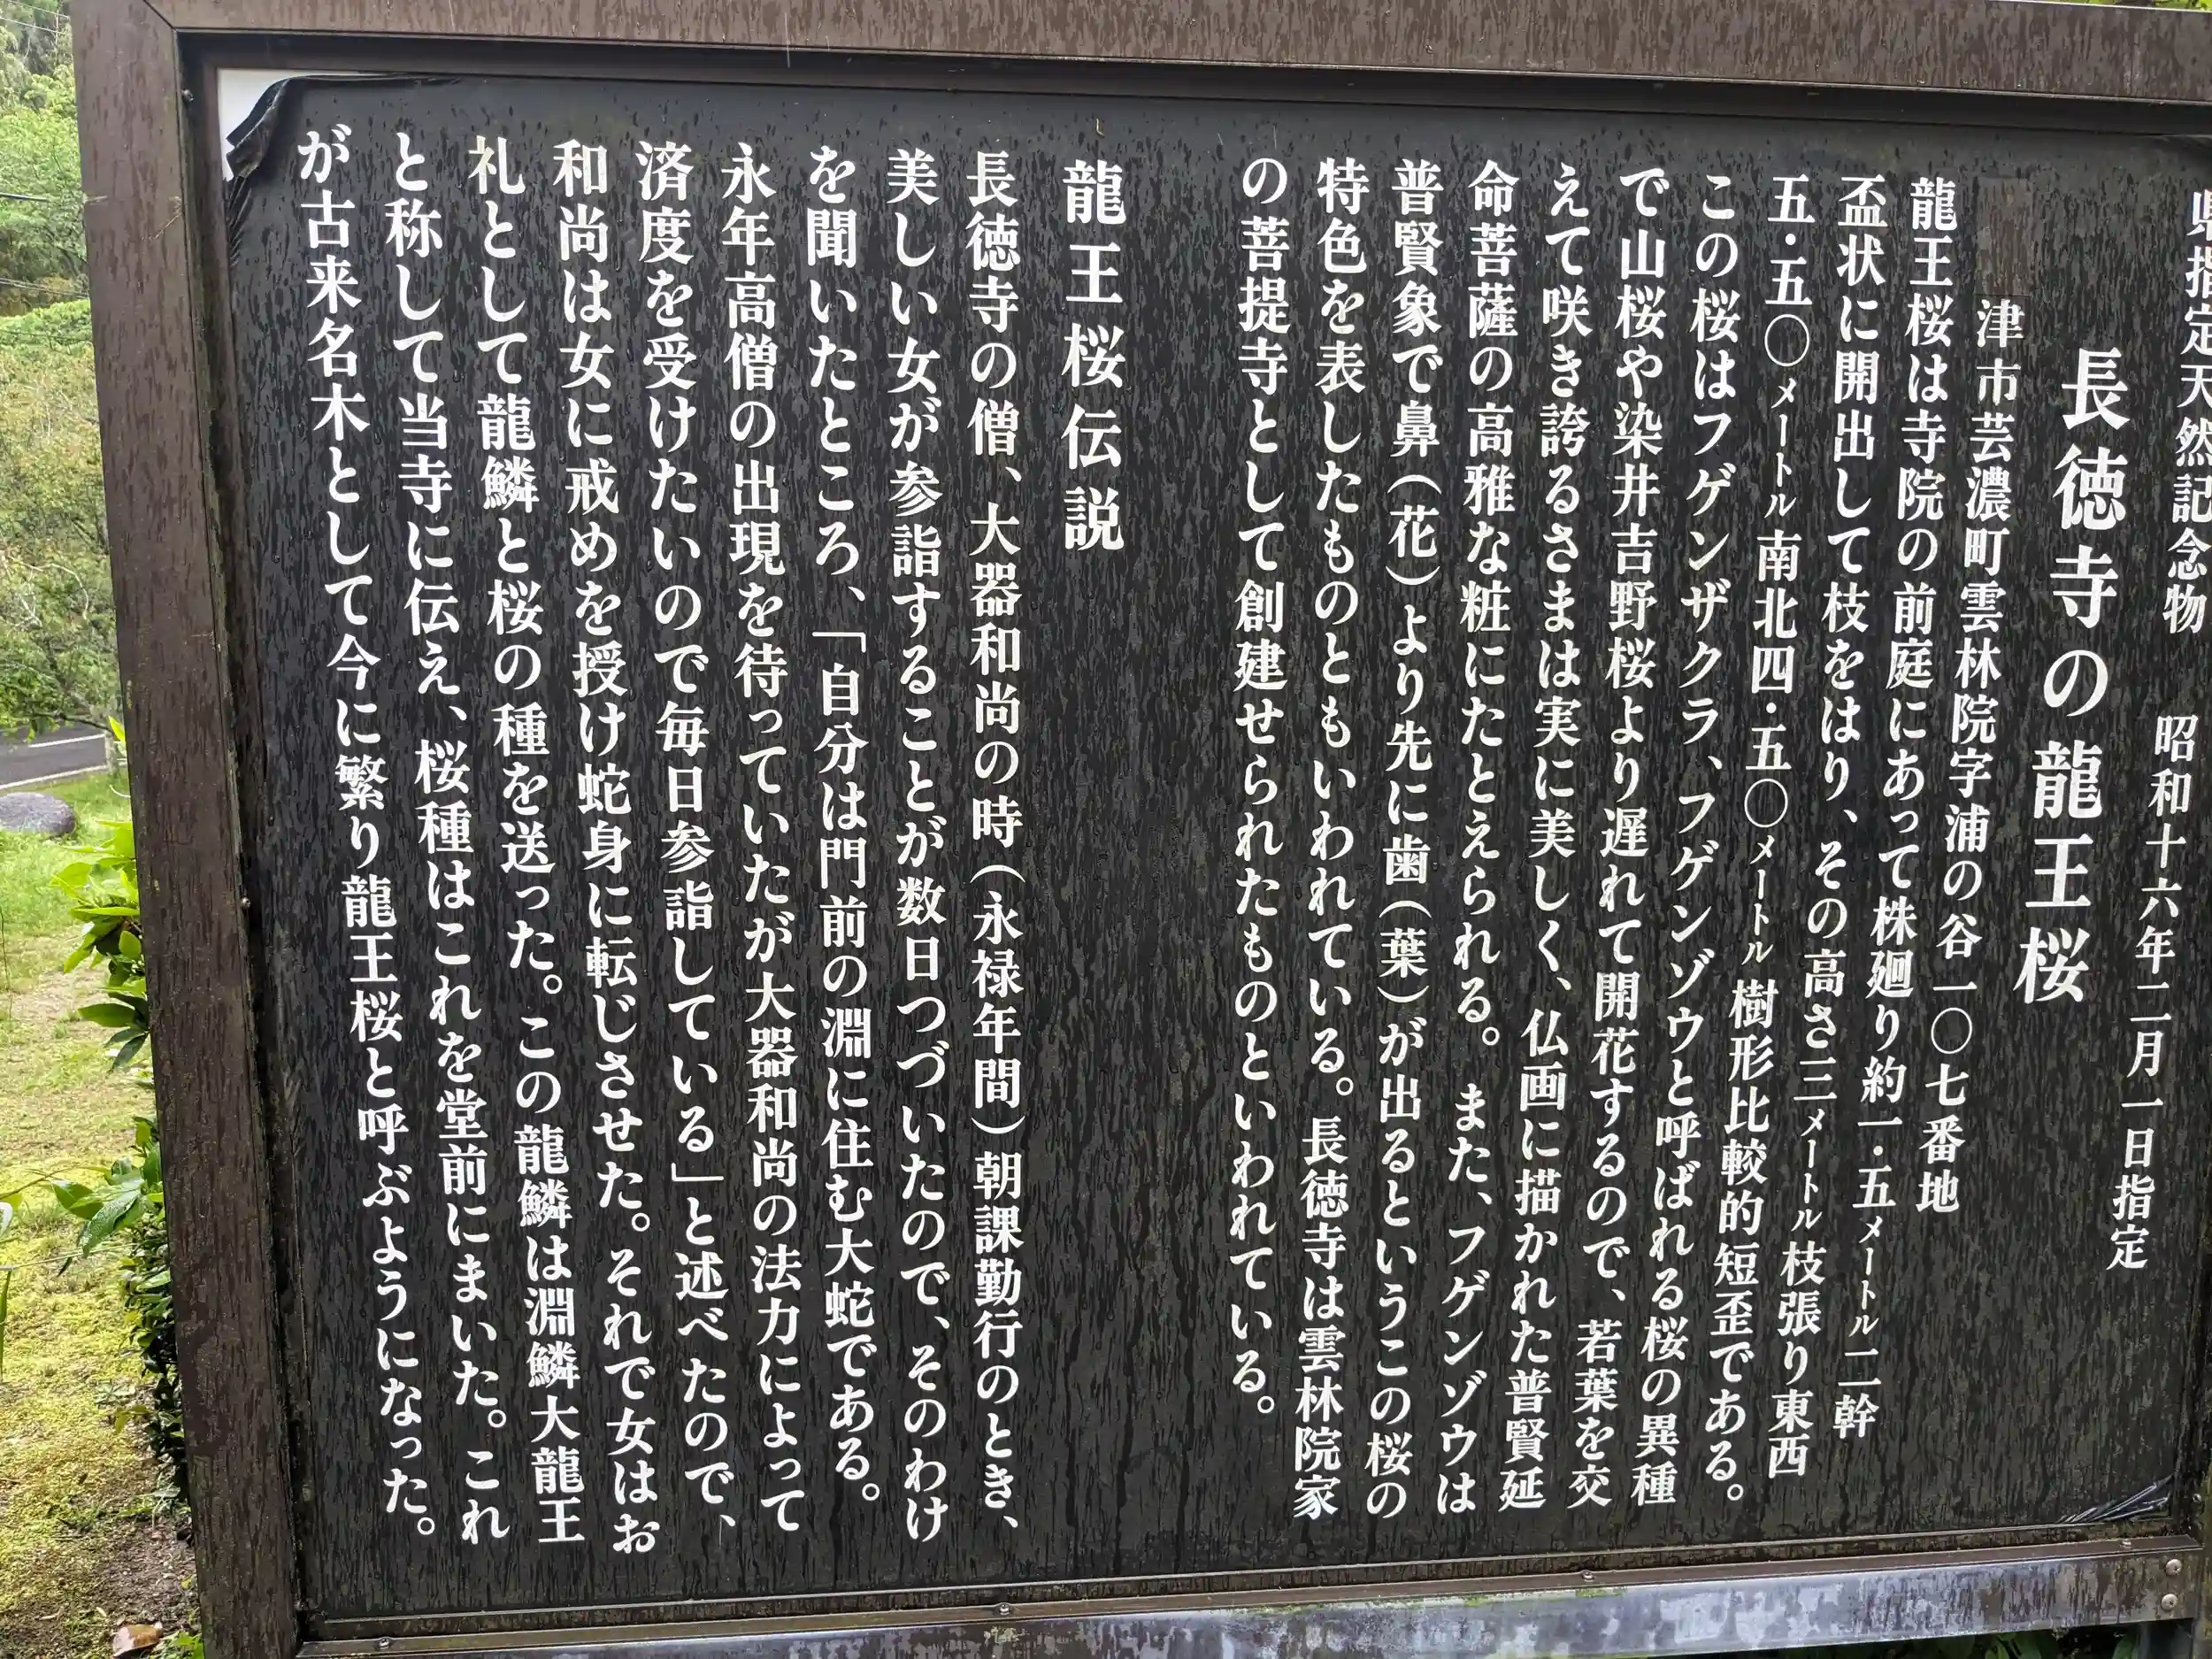 県指定天然記念物 昭和十六年二月一日指定
長徳寺の龍王桜
津市芸濃町雲林院字浦の谷一〇七番地
龍王桜は寺院の前庭にあって株廻り約一・五メートル二幹
盃状に開出して枝をはり、その高さ三メートル枝張り東西
五・五〇メートル南北四・五〇メートル樹形比較的短歪である。
この桜はフゲンザクラ、フゲンゾウと呼ばれる桜の異種
で山桜や染井吉野桜より遅れて開花するので、若葉を交
えて咲き誇るさまは実に美しく、仏画に描かれた普賢延
命菩薩の高雅な粧にたとえられる。また、フゲンゾウは
普賢象で鼻(花)より先に歯(葉)が出るというこの桜の
特色を表したものともいわれている。長徳寺は雲林院家
の菩提寺として創建せられたものといわれている。
龍王桜伝説
長徳寺の僧、大器和尚の時(永禄年間)朝課勤行のとき、
美しい女が参詣することが数日つづいたので、そのわけ
を聞いたところ、「自分は門前の淵に住む大蛇である。
永年高僧の出現を待っていたが大器和尚の法力によって
済度を受けたいので毎日参詣している」と述べたので、
和尚は女に戒めを授け蛇身に転じさせた。それで女はお
礼として龍鱗と桜の種を送った。この龍鱗は淵鱗大龍王
と称して当寺に伝え、桜種はこれを堂前にまいた。これ
が古来名木として今に繁り龍王桜と呼ぶようになった。